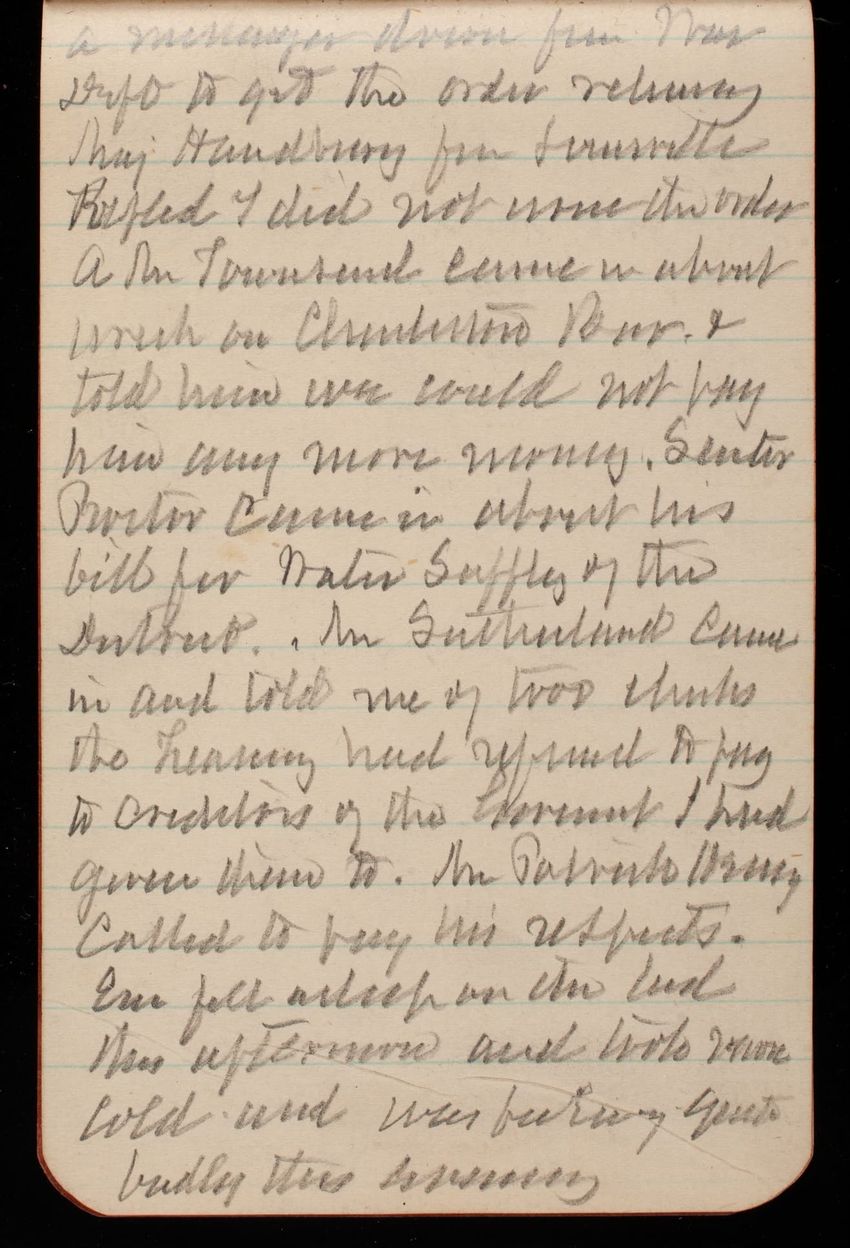 a messenger down from War
Dept to get the order relieving
Maj Handbury from Louisville
Replied I did not issue the order
A Mr Townsend came in about
wreck on Charleston Bar. &
told him we could not pay
him any more money. Senator
Proctor came in about his
bill for Water Supply of the
District. Mr Sutherland came
in and told me of two checks
the Treasury had refused to pay
to creditors of the Government I had
given them to. Mr Patrick Henry
Called to pay his respects.
Em fell asleep on the bed
this afternoon and took more
cold and was feeling quite
badly this evening